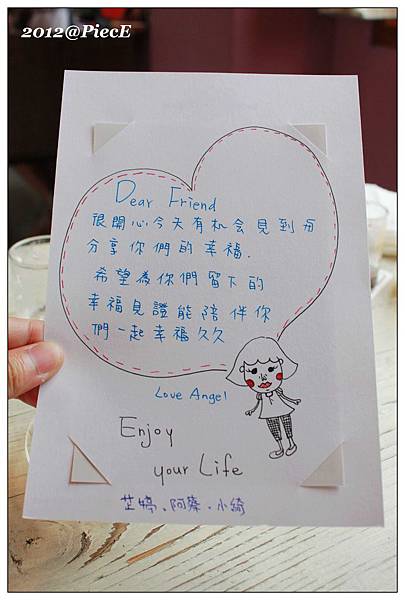 2012@PiecE
Dear Friend
很開心今天有机会見到与
分享你們的幸福.
希望為你們留下的
幸福見證能陪伴你
們一起幸福久久
Love Angel
Enjoy
your Life
芷婷.阿蓁.小綺